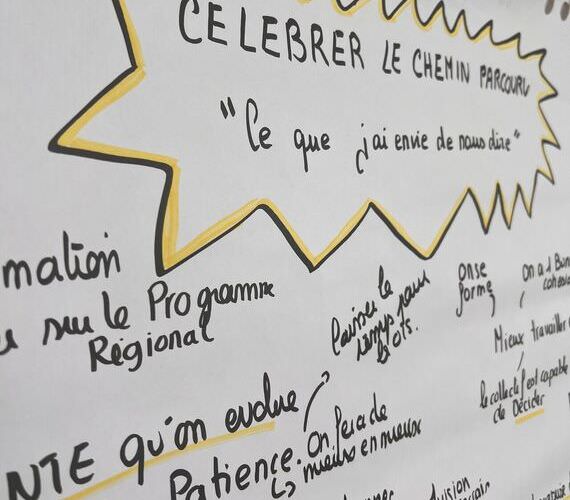 CELEBRER LE CHEMIN PARCOURU
"Ce que j'ai envie de nous dire"
mation
sur le Programme
Régional
laisser le
temps pour
les ots.
On se
forme
on a 1 Bon
cohésion
Mieux travailler
le collectif est capable
de Décider
NTE qu'on evolue
Patience. On fera de
mieux en mieux